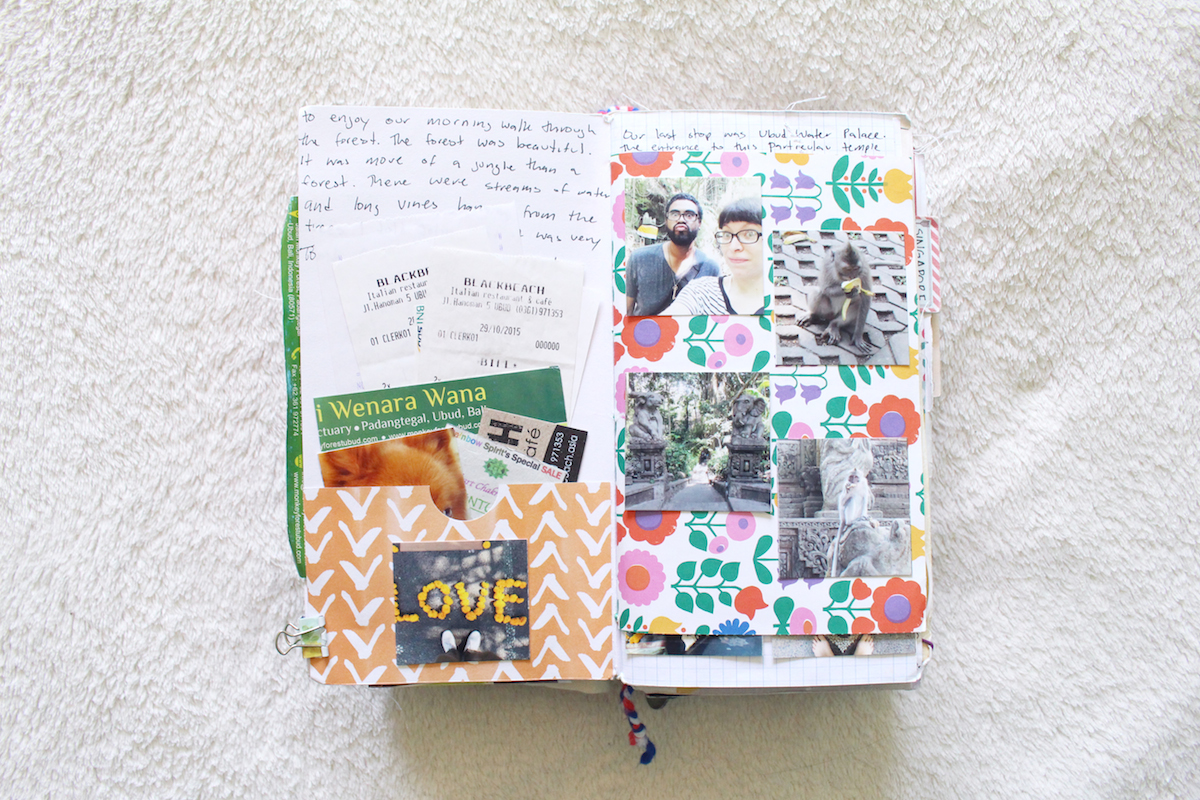 to enjoy our morning walk through
the forest. The forest was beautiful.
It was more of a jungle than a
forest. There were streams of water
and long vines from the
was very
To
Our last stop was Ubud Water Palace.
the entrance to this particular temple
BLACKB
Italian restaur
Jl.Hanoman 5 U
01 CLERK01
BLACKBEACH
Italian restaurant & café
Jl.Hanoman 5 UBUD (0361)971353
29/10/2015
01 CLERK01 000000
BILL
Ubud, Bali, Indonesia (80571)
Fax: +62 361 972774
www.monkeyforestubud.com
i Wenara Wana
ctuary • Padangtegal, Ubud, Bal
yforestubud.com • www.monkey
H
afé
971353
each.asia
nbow Spirit's Special SALE
LOVE
SINGAPORE